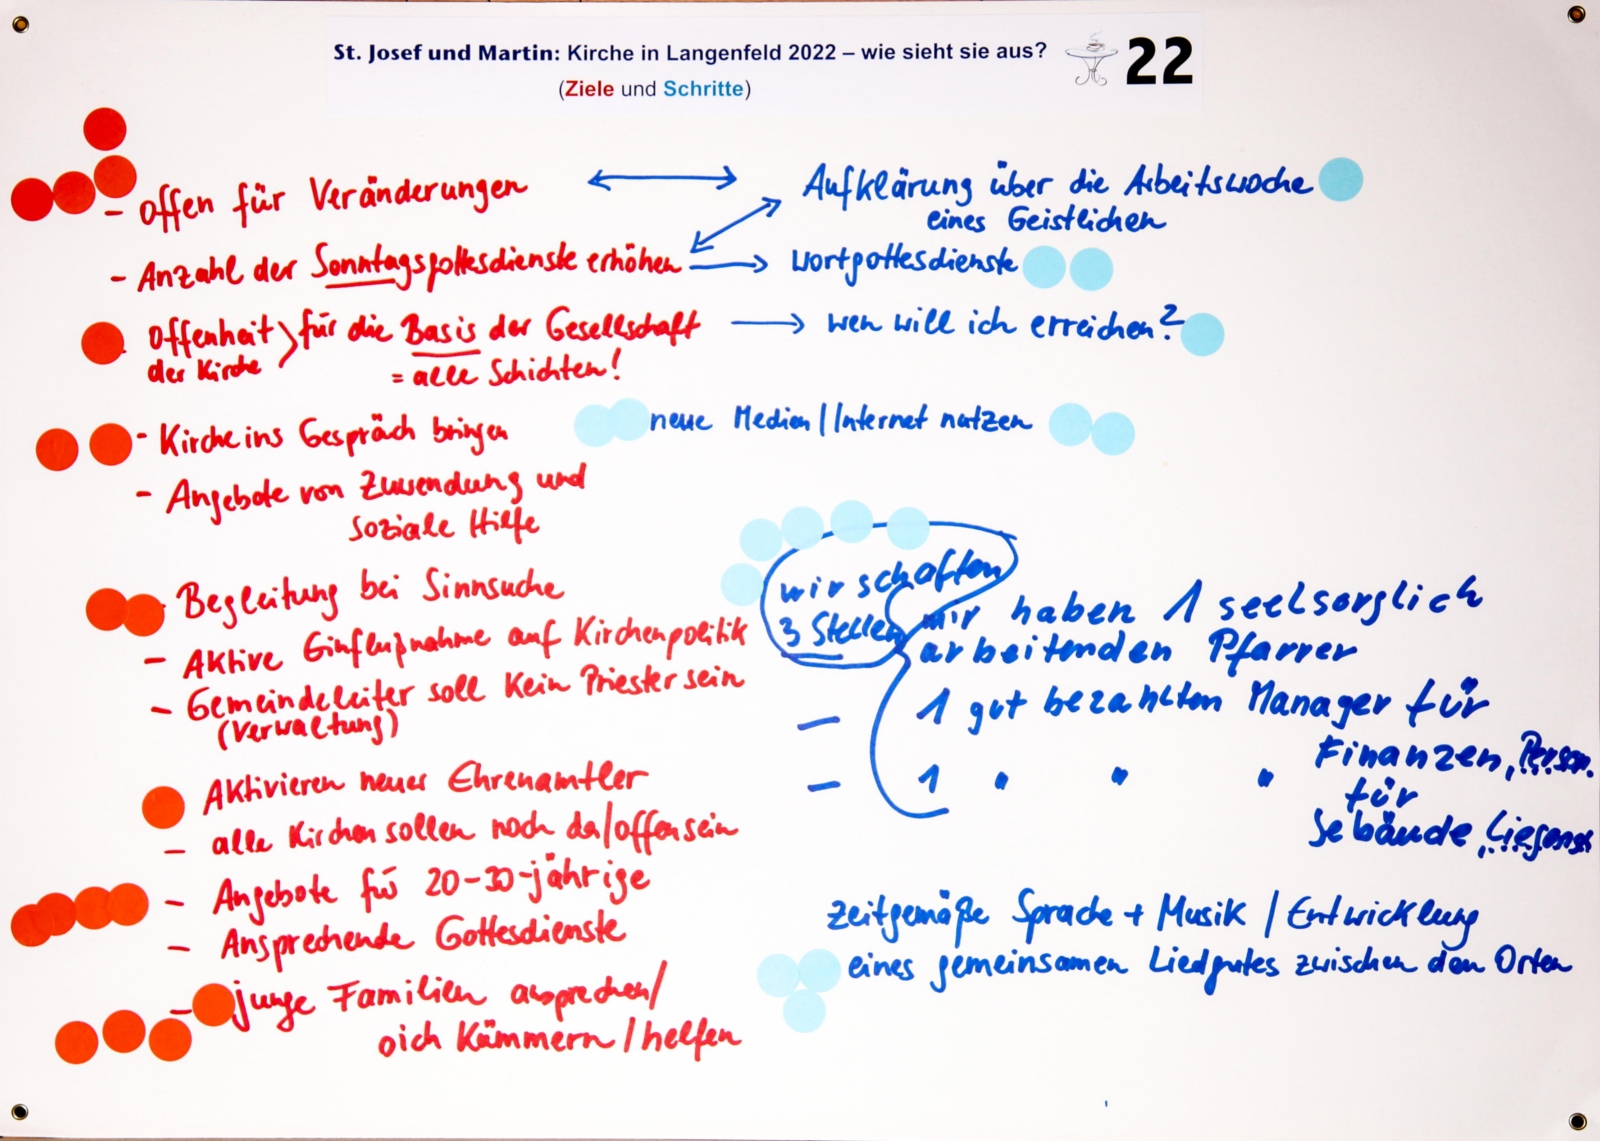 St. Josef und Martin: Kirche in Langenfeld 2022 – wie sieht sie aus?
(Ziele und Schritte)
22
- offen für Veränderungen
- Anzahl der Sonntagsgottesdienste erhöhen
Offenheit der Kirche } für die Basis der Gesellschaft
= alle Schichten!
- Kirche ins Gespräch bringen
- Angebote von Zuwendung und
soziale Hilfe
Begleitung bei Sinnsuche
- Aktive Einflußnahme auf Kirchenpolitik
- Gemeindeleiter soll kein Priester sein
(Verwaltung)
Aktivieren neuer Ehrenamtler
- alle Kirchen sollen noch da/offen sein
- Angebote für 20-30-jährige
- Ansprechende Gottesdienste
- junge Familien ansprechen/
sich kümmern/helfen
Aufklärung über die Arbeitswoche
eines Geistlichen
Wortgottesdienste
wen will ich erreichen?
neue Medien/Internet nutzen
wir schaffen
3 Stellen
wir haben 1 seelsorglich
arbeitenden Pfarrer
- 1 gut bezahlten Manager für
Finanzen, Person.
- 1 " " " für
Gebäude, Liegensch
zeitgemäße Sprache + Musik / Entwicklung
eines gemeinsamen Liedgutes zwischen den Orten